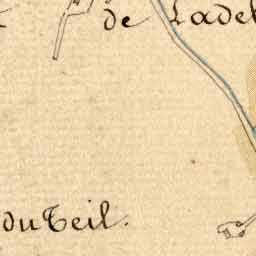 de Ladel
du Teil.